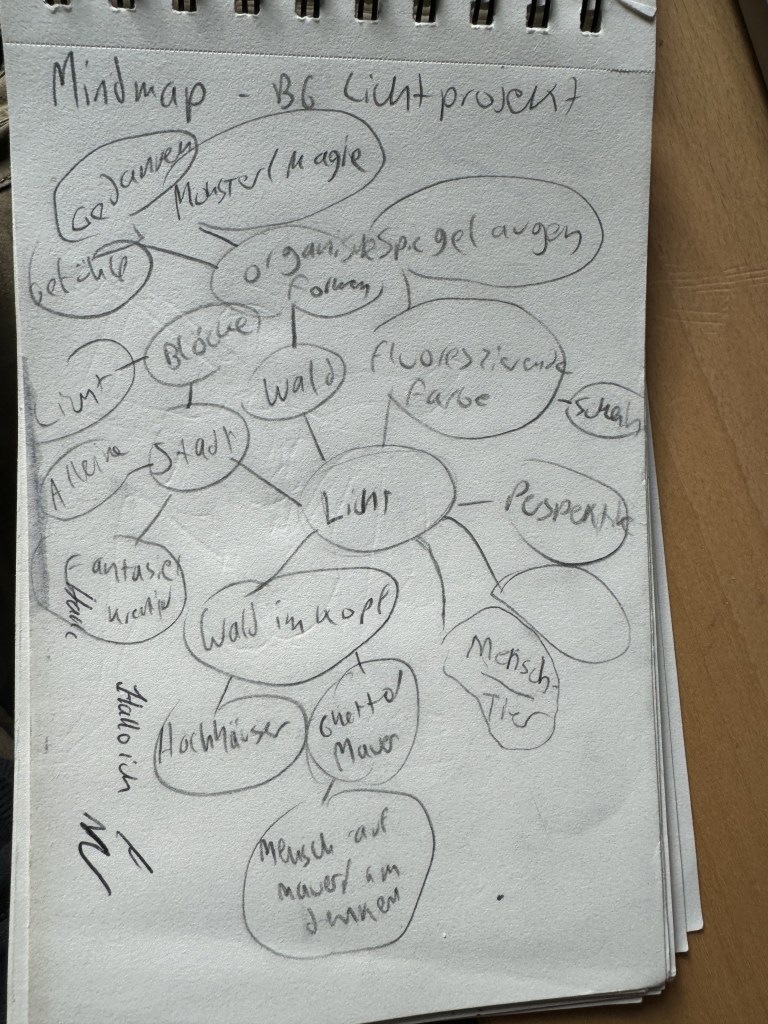 Mindmap - BG Lichtprojekt
Gedanken
Monster/Magie
Gefühle
organische
formen
Spiegel augen
Blöcke
Licht
Wald
fluoreszierende
farbe
Alleine
Stadt
Licht
Pespektive
Fantasie/
kreativ
Wald im Kopf
Mensch-
Tier
Hochhäuser
Ghetto/
Mauer
Hallo ich
Mensch auf
mauer/ am
denken